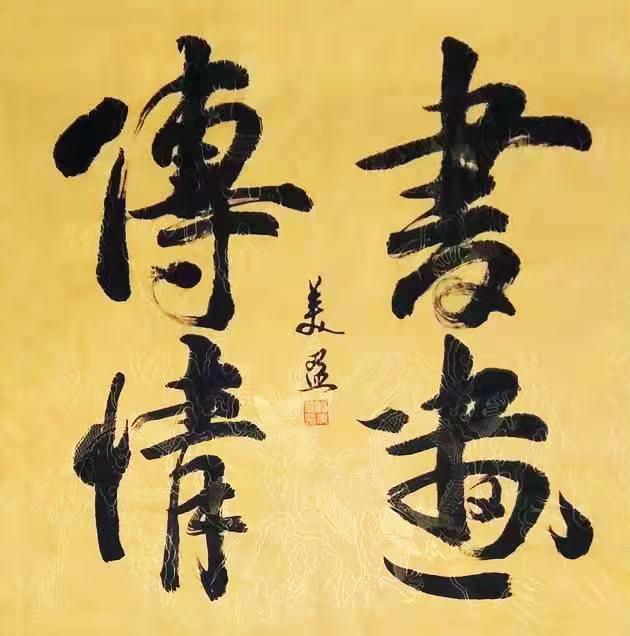 書畫
傳情
美盈